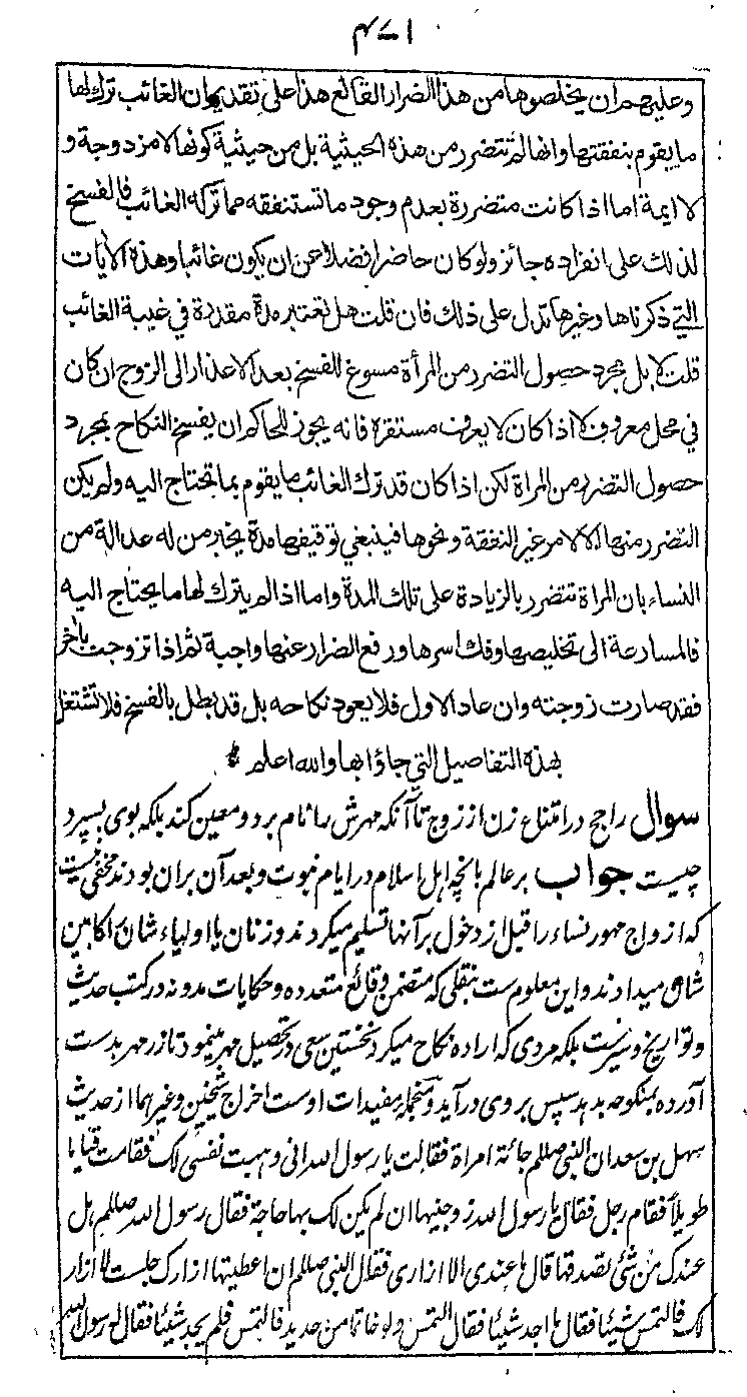 ۴۷۱
وعليهم ان يخلصوها من هذا الضرار القالع هذا على تقدير ان الغائب ترك لها
ما يقوم بنفقتها وانها لم تتضرر من هذه الحيثية بل من حيثية كونها لا مزدوجة و
لا ايمة اما اذا كانت متضررة بعدم وجود ما تستنفقه مما تركه الغائب فالفسخ
لذلك على انفراده جائز ولو كان حاضرا فضلا عن ان يكون غائبا وهذه الايات
التي ذكرناها وغيرها تدل على ذلك فان قلت هل تعتبر مدة مقدرة في غيبة الغائب
قلت لا بل مجرد حصول التضرر من المرأة مسوغ للفسخ بعد الاعذار الى الزوج ان كان
في محل معروف لا اذا كان لا يعرف مستقره فانه يجوز للحاكم ان يفسخ النكاح بمجرد
حصول التضرر من المراة لكن اذا كان قد ترك الغائب ما يقوم بما تحتاج اليه ولم يكن
التضرر منها الا لامر غير النفقة ونحوها فينبغي توقيفها مدة يخبر من له عدالة من
النساء بان المراة تتضرر بالزيادة على تلك المدة واما اذا لم يترك لها ما يحتاج اليه
فالمسارعة الى تخليصها وفك اسرها ورفع الضرار عنها واجبة ثم اذا تزوجت باخر
فقد صارت زوجته وان عاد الاول فلا يعود نكاحه بل قد بطل بالفسخ فلا تشتغل
بهذه التفاصيل التي جاؤا بها والله اعلم
سوال راجح در امتناع زن از زوج تا آنکه مهرش را نام برد و معین کند بلکه بوی بسپرد
چیست جواب بر عالم بانچه اهل اسلام در ایام نبوت و بعد آن بران بودند مخفی نیست
که ازواج مهور نساء را قبل از دخول بر آنها تسلیم میکردند و زنان یا اولیاء شان کابین
شان میدادند واین معلوم ست بنقلی که متضمن وقائع متعدده وحکایات مدونه در کتب حدیث
وتواریخ وسیرست بلکه مردی که اراده نکاح میکرد نخستین سعی در تحصیل مهر مینمود تا زر مهر بدست
آورده بمنکوحه بدهد سپس بر وی درآید ومنجمله مفیدات اوست اخراج شیخین وغیرهما از حدیث
سهل بن سعد ان النبي صللم جائته امراة فقالت يا رسول الله اني وهبت نفسي لك فقامت قياما
طويلا فقام رجل فقال يا رسول الله زوجنيها ان لم يكن لك بها حاجة فقال رسول الله صللم هل
عندك من شئ تصدقها قال ما عندي الا ازاري فقال النبي صللم ان اعطيتها ازارك جلست لا ازار
لك فالتمس شيئا فقال ما اجد شيئا فقال التمس ولو خاتما من حديد فالتمس فلم يجد شيئا فقال له رسول الله